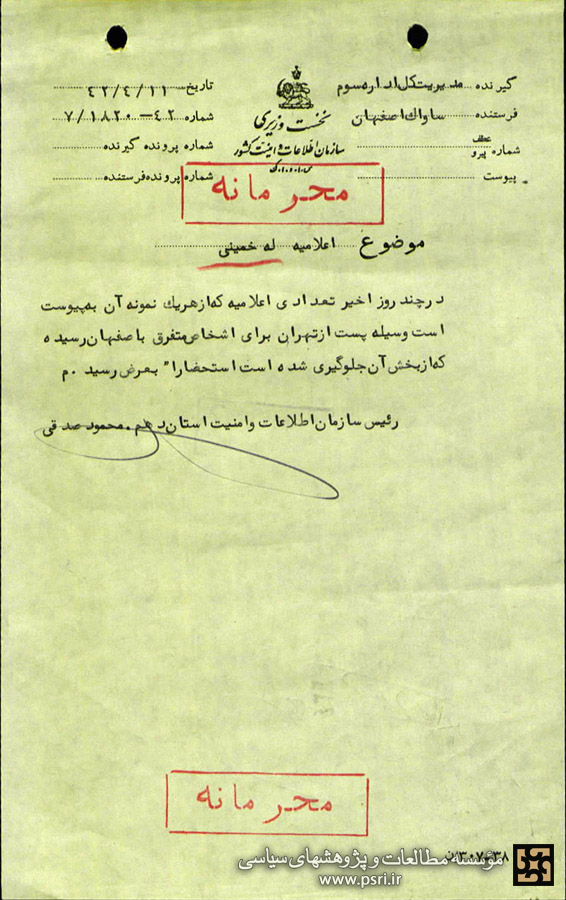 گیرنده مدیریت کل اداره سوم
فرستنده ساواک اصفهان
شماره عطف پیرو
پیوست
نخست وزیری
سازمان اطلاعات و امنیت کشور
س.ا.و.ا.ک
تاریخ ۴۲/۴/۱۱
شماره ۴۲-۷/۱۸۲۰
شماره پرونده گیرنده
شماره پرونده فرستنده
محرمانه
موضوع اعلامیه له خمینی
در چند روز اخیر تعدادی اعلامیه که از هر یك نمونه آن به پیوست
است وسیله پست از تهران برای اشخاص متفرق باصفهان رسیده
که از پخش آن جلوگیری شده است استحضارا" بعرض رسید .م
رئیس سازمان اطلاعات و امنیت استان دهم . محمود صدقی
محرمانه
موسسه مطالعات و پژوهشهای سیاسی
www.psri.ir